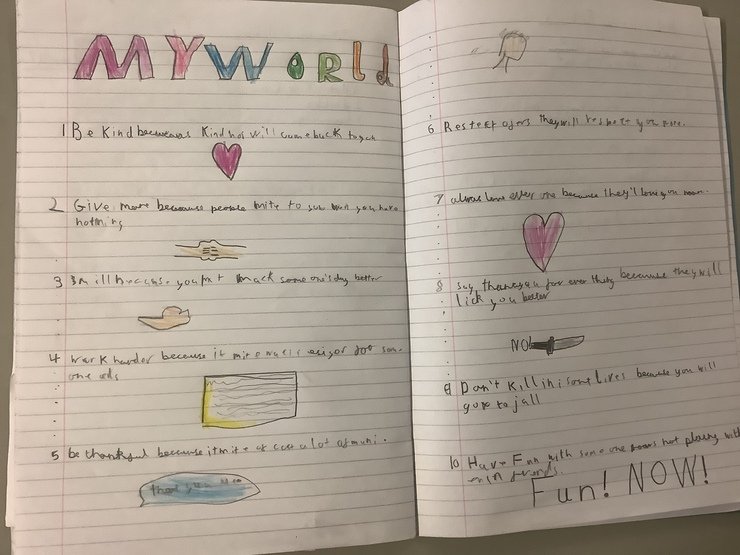 MY WORLD
1 Be kind becweas kindnos will come back to you
2 Give more because people mite to you wen you have
nothing
3 Smill because you mit mack someone's day better
4 Work harder because it mite
one
5 be thankful because it mite of cost a lot of muni.
thank you
6 they will respect you more.
7 love ever one because they'll love you
8 Say thankyou for ever thing because they will
lick you better
NO!
9 Don't kill inisont lives because you will
go to jall
10 Have Fun with some one not playing with
Fun! NOW!